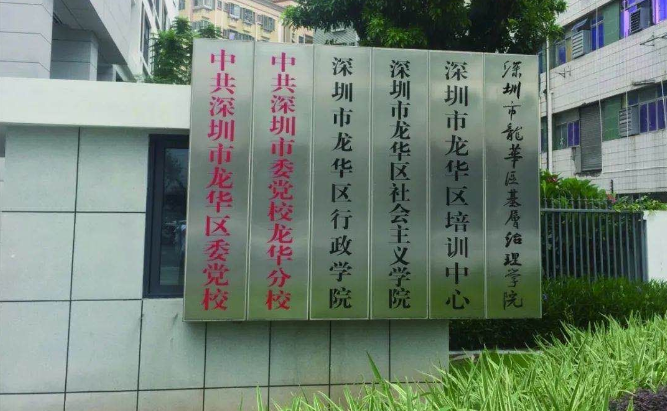 中共深圳市龙华区委党校
中共深圳市委党校龙华分校
深圳市龙华区行政学院
深圳市龙华区社会主义学院
深圳市龙华区培训中心
深圳市龍華區基層治理学院